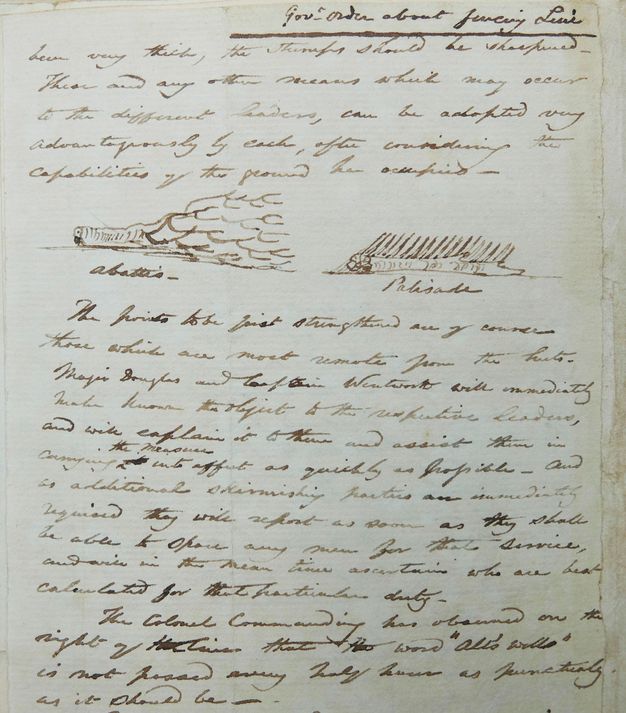 Govr. order about fencing Line
been very thick, the Stumps should be sharpened–
These and any other means which may occur
to the different leaders, can be adopted very
advantageously by each, after considering the
capabilities of the ground he occupies –
abattis –
Palisade
The points to be first strengthened are of course
those which are most remote from the huts.
Major Douglas and Captain Wentworth will immediately
make known the object to the respective leaders,
and will explain it to them and assist them in
the measure
carrying into effect as quickly as possible – and
as additional skirmishing parties are immediately
required they will report as soon as they shall
be able to spare any men for that service,
and will in the mean time ascertain who are best
calculated for that particular duty –
The Colonel Commanding has observed on the
right of lines that the word "All's wells"
is not passed every half hour as punctually
as it should be –